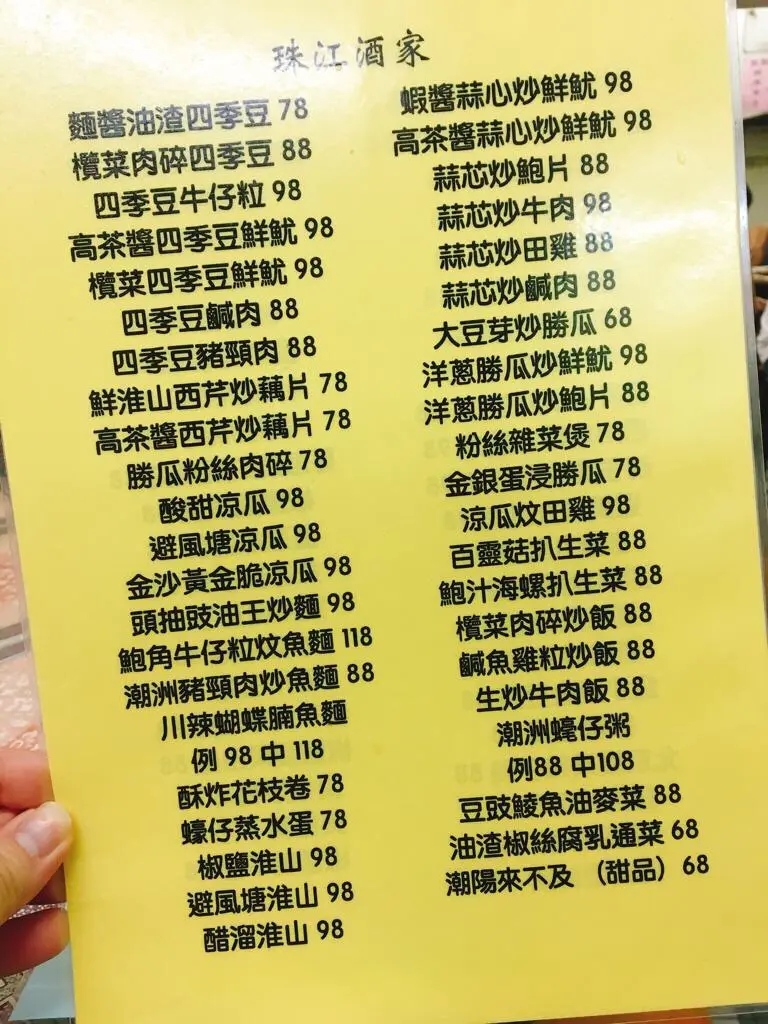 珠江酒家
麵醬油渣四季豆 78
欖菜肉碎四季豆 88
四季豆牛仔粒 98
高茶醬四季豆鮮魷 98
欖菜四季豆鮮魷 98
四季豆鹹肉 88
四季豆豬頸肉 88
鮮淮山西芹炒藕片 78
高茶醬西芹炒藕片 78
勝瓜粉絲肉碎 78
酸甜凉瓜 98
避風塘凉瓜 98
金沙黃金脆凉瓜 98
頭抽豉油王炒麵 98
鮑角牛仔粒炆魚麵 118
潮洲豬頸肉炒魚麵 88
川辣蝴蝶腩魚麵
例 98 中 118
酥炸花枝卷 78
蠔仔蒸水蛋 78
椒鹽淮山 98
避風塘淮山 98
醋溜淮山 98
蝦醬蒜心炒鮮魷 98
高茶醬蒜心炒鮮魷 98
蒜芯炒鮑片 88
蒜芯炒牛肉 98
蒜芯炒田雞 88
蒜芯炒鹹肉 88
大豆芽炒勝瓜 68
洋蔥勝瓜炒鮮魷 98
洋蔥勝瓜炒鮑片 88
粉絲雜菜煲 78
金銀蛋浸勝瓜 78
涼瓜炆田雞 98
百靈菇扒生菜 88
鮑汁海螺扒生菜 88
欖菜肉碎炒飯 88
鹹魚雞粒炒飯 88
生炒牛肉飯 88
潮洲蠔仔粥
例88 中108
豆豉鯪魚油麥菜 88
油渣椒絲腐乳通菜 68
潮陽來不及 （甜品） 68